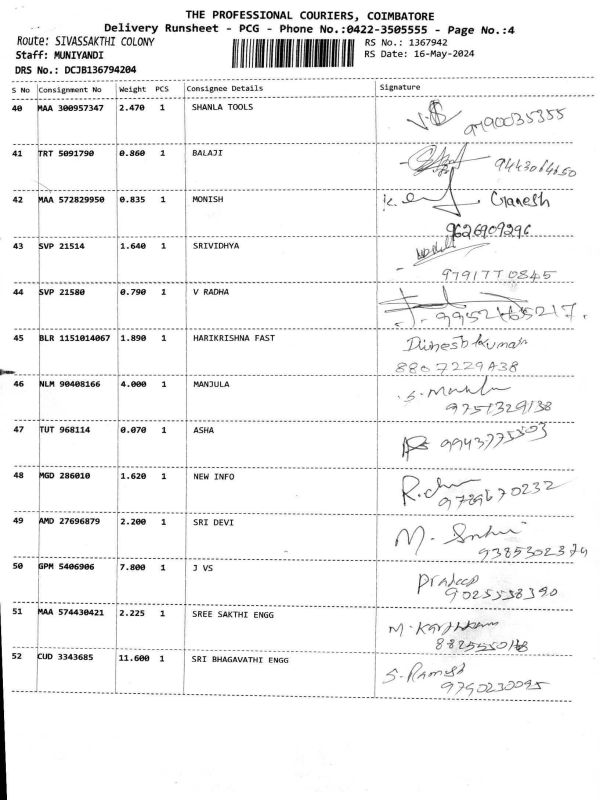 THE PROFESSIONAL COURIERS, COIMBATORE
Delivery Runsheet - PCG - Phone No.:0422-3505555 - Page No.:4
Route: SIVASSAKTHI COLONY RS No.: 1367942
Staff: MUNIYANDI RS Date: 16-May-2024
DRS No.: DCJB136794204
S No Consignment No Weight PCS Consignee Details Signature
40 MAA 300957347 2.470 1 SHANLA TOOLS
41 TRT 5091790 0.860 1 BALAJI
42 MAA 572829950 0.835 1 MONISH Ganesh
9626909296
43 SVP 21514 1.640 1 SRIVIDHYA
9791770845
44 SVP 21580 0.790 1 V RADHA
9952165217.
45 BLR 1151014067 1.890 1 HARIKRISHNA FAST Dinesh Kumar
8807229438
46 NLM 90408166 4.000 1 MANJULA
9751329138
47 TUT 968114 0.070 1 ASHA 9943775503
48 MGD 286010 1.620 1 NEW INFO
9789670232
49 AMD 27696879 2.200 1 SRI DEVI
9385302374
50 GPM 5406906 7.800 1 J VS Pradeep
9025558390
51 MAA 574430421 2.225 1 SREE SAKTHI ENGG
52 CUD 3343685 11.600 1 SRI BHAGAVATHI ENGG S. Ramesh
9790230095